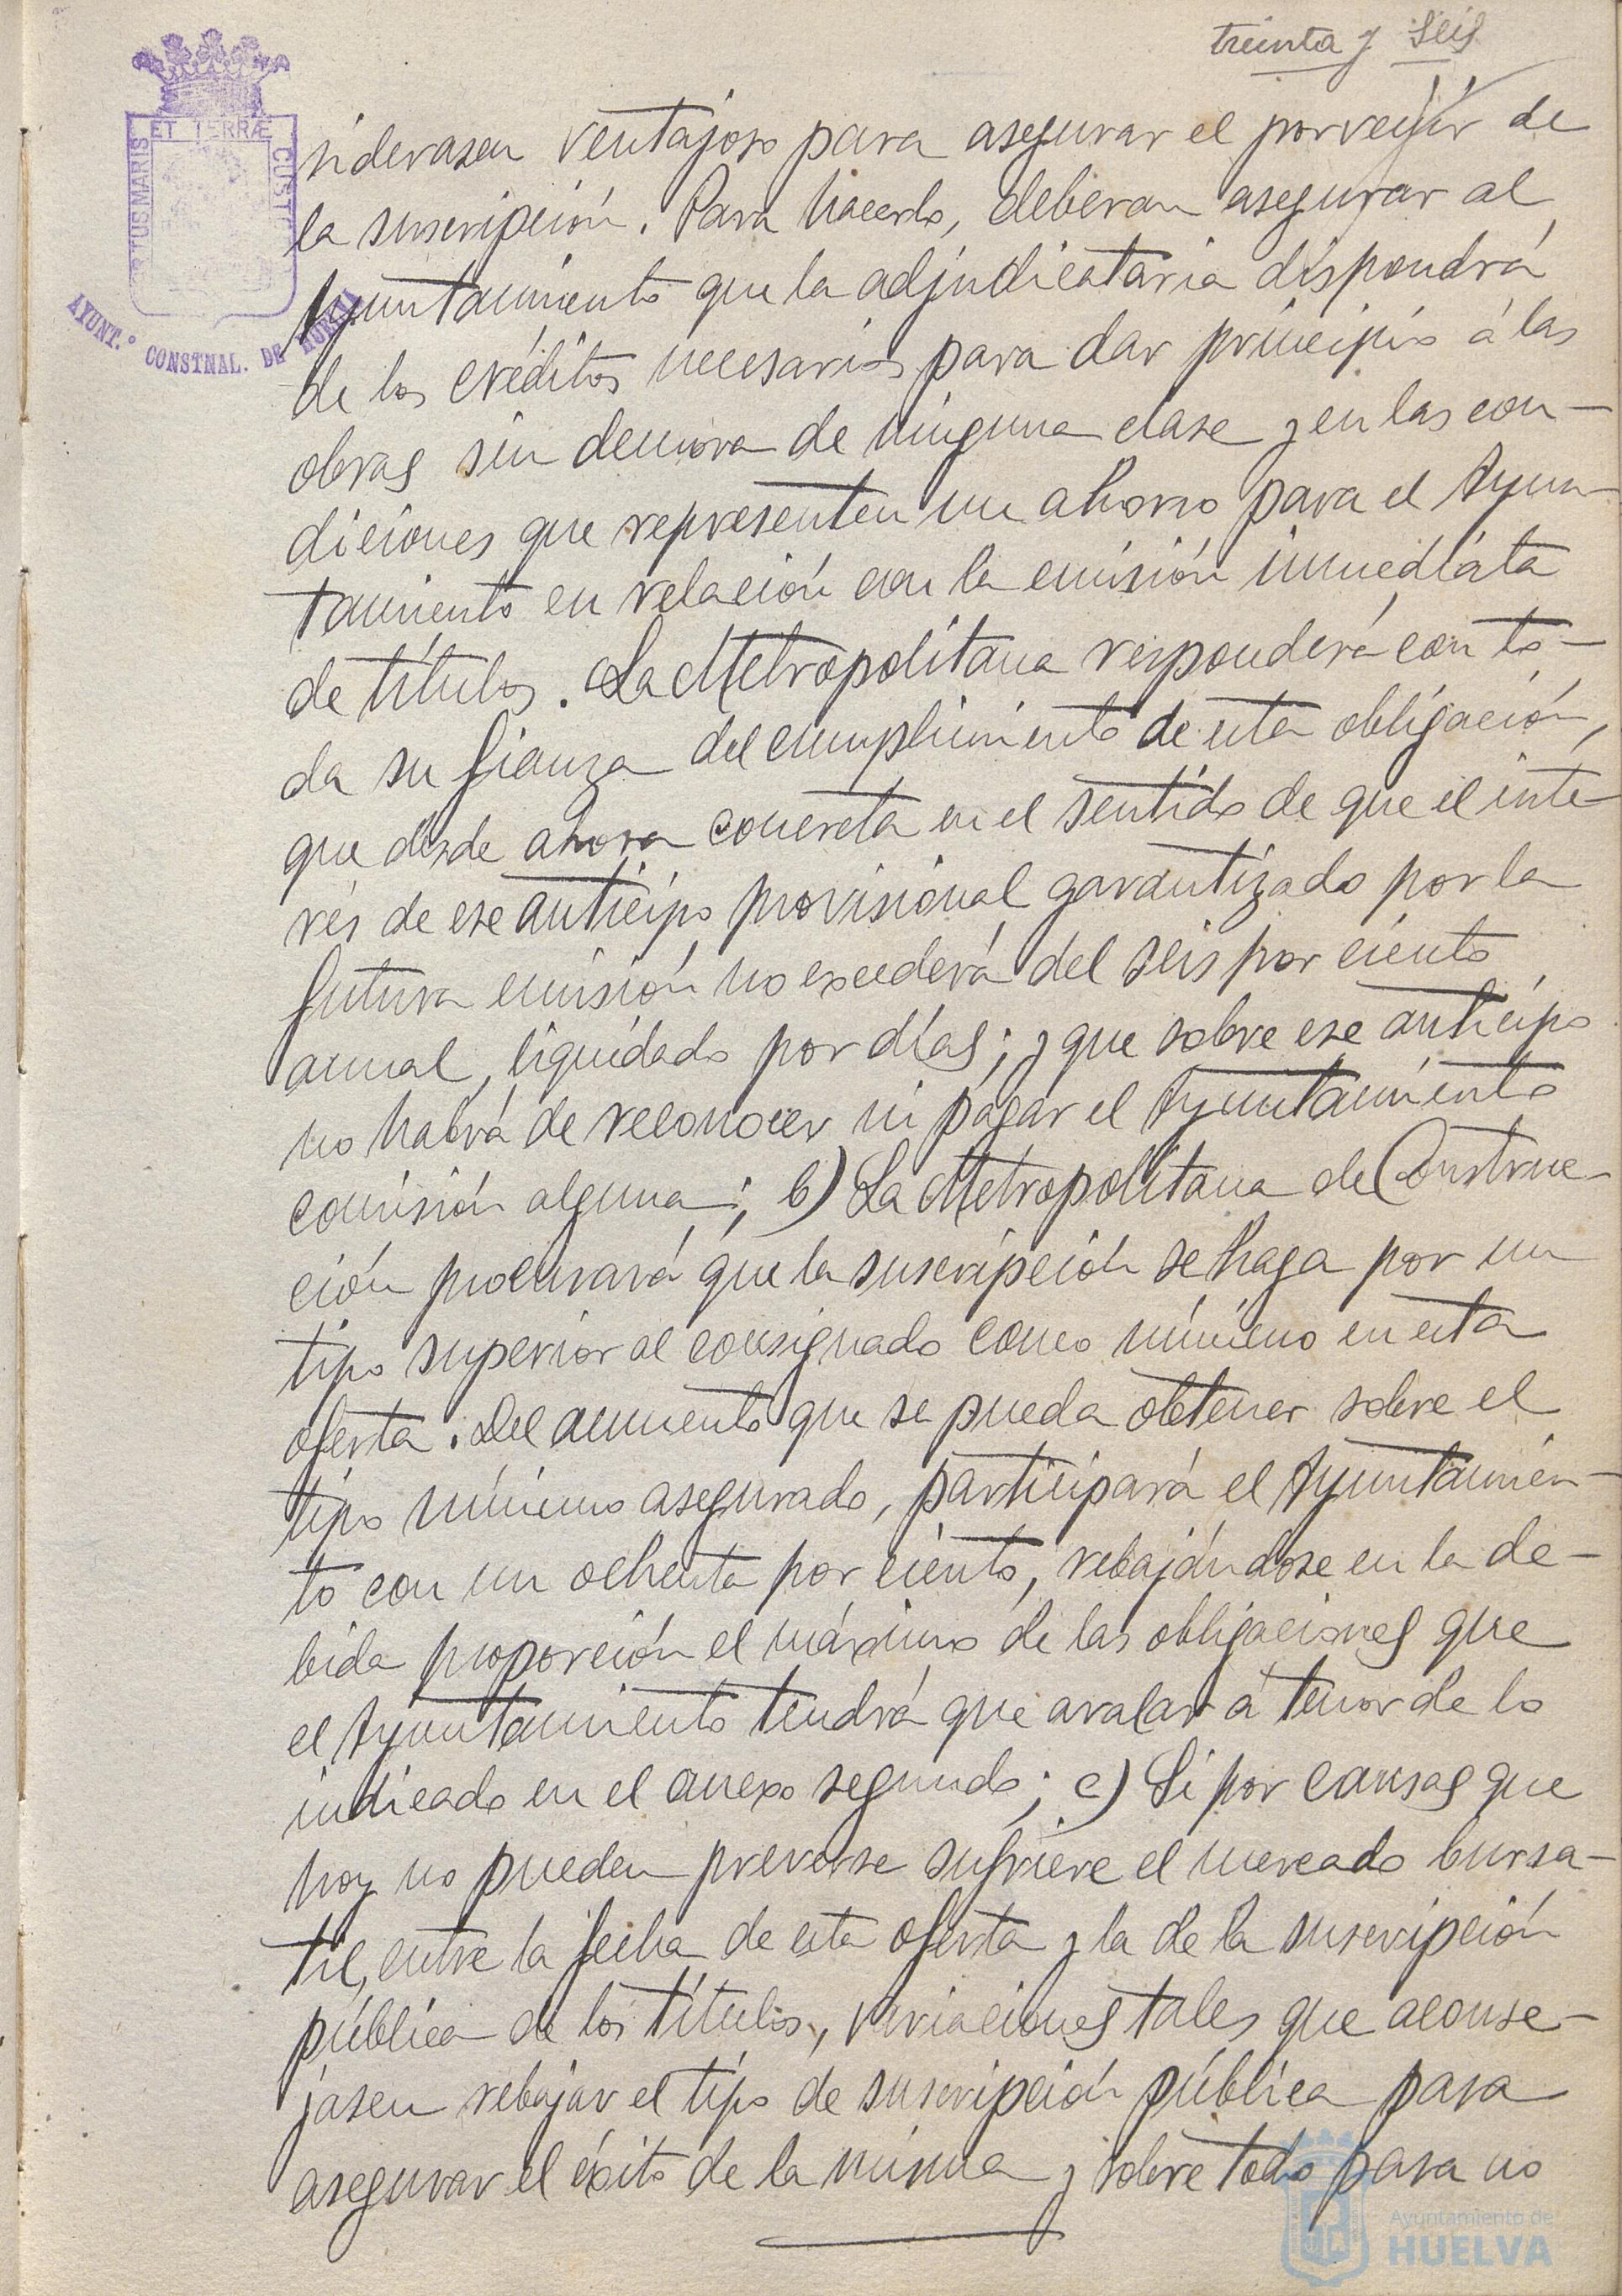 treinta y seis
ET TERRÆ
PORTUS MARIS
CUST
AYUNT.º CONSTNAL. DE HUELVA
siderasen ventajoso para asegurar el porvenir de
la suscripción. Para hacerlo, deberan asegurar al
Ayuntamiento que la adjudicataria dispondrá
de los créditos necesarios para dar principio á las
obras sin demora de ninguna clase y en las con-
diciones que representen un ahorro para el Ayun-
tamiento en relación con la emisión inmediata
de títulos. La Metropolitana responderá con to-
da su fianza del cumplimiento de esta obligación,
que desde ahora concreta en el sentido de que el inte-
rés de ese anticipo provisional garantizado por la
futura emisión no excederá del seis por ciento
anual, liquidado por días; y que sobre ese anticipo
no habrá de reconocer ni pagar el Ayuntamiento
comisión alguna; b) La Metropolitana de Construc-
ción procurará que la suscripción se haga por un
tipo superior al consignado como mínimo en esta
oferta. Del aumento que se pueda obtener sobre el
tipo mínimo asegurado, participará el Ayuntamien-
to con un ochenta por ciento, rebajándose en la de-
bida proporción el máximo de las obligaciones que
el Ayuntamiento tendrá que avalar á tenor de lo
indicado en el anexo segundo; c) Si por causas que
hoy no pueden preverse sufriere el mercado bursa-
til, entre la fecha de esta oferta y la de la suscripción
pública de los títulos, variaciones tales que aconse-
jasen rebajar el tipo de suscripción pública para
asegurar el éxito de la misma y sobre todo para no
Ayuntamiento de
HUELVA